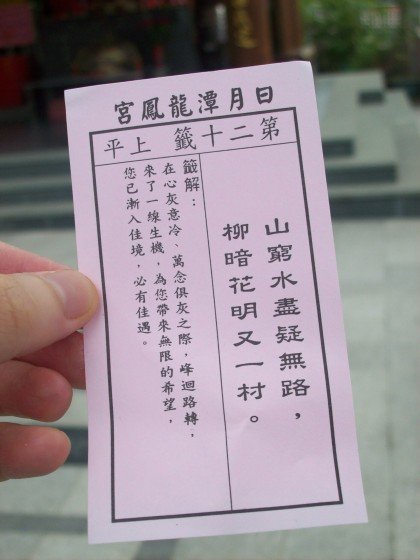 日月潭龍鳳宮
第二十籤 上平
山窮水盡疑無路，
柳暗花明又一村。
籤解：
在心灰意冷、萬念俱灰之際，峰迴路轉，
來了一線生機，為您帶來無限的希望，
您已漸入佳境，必有佳遇。